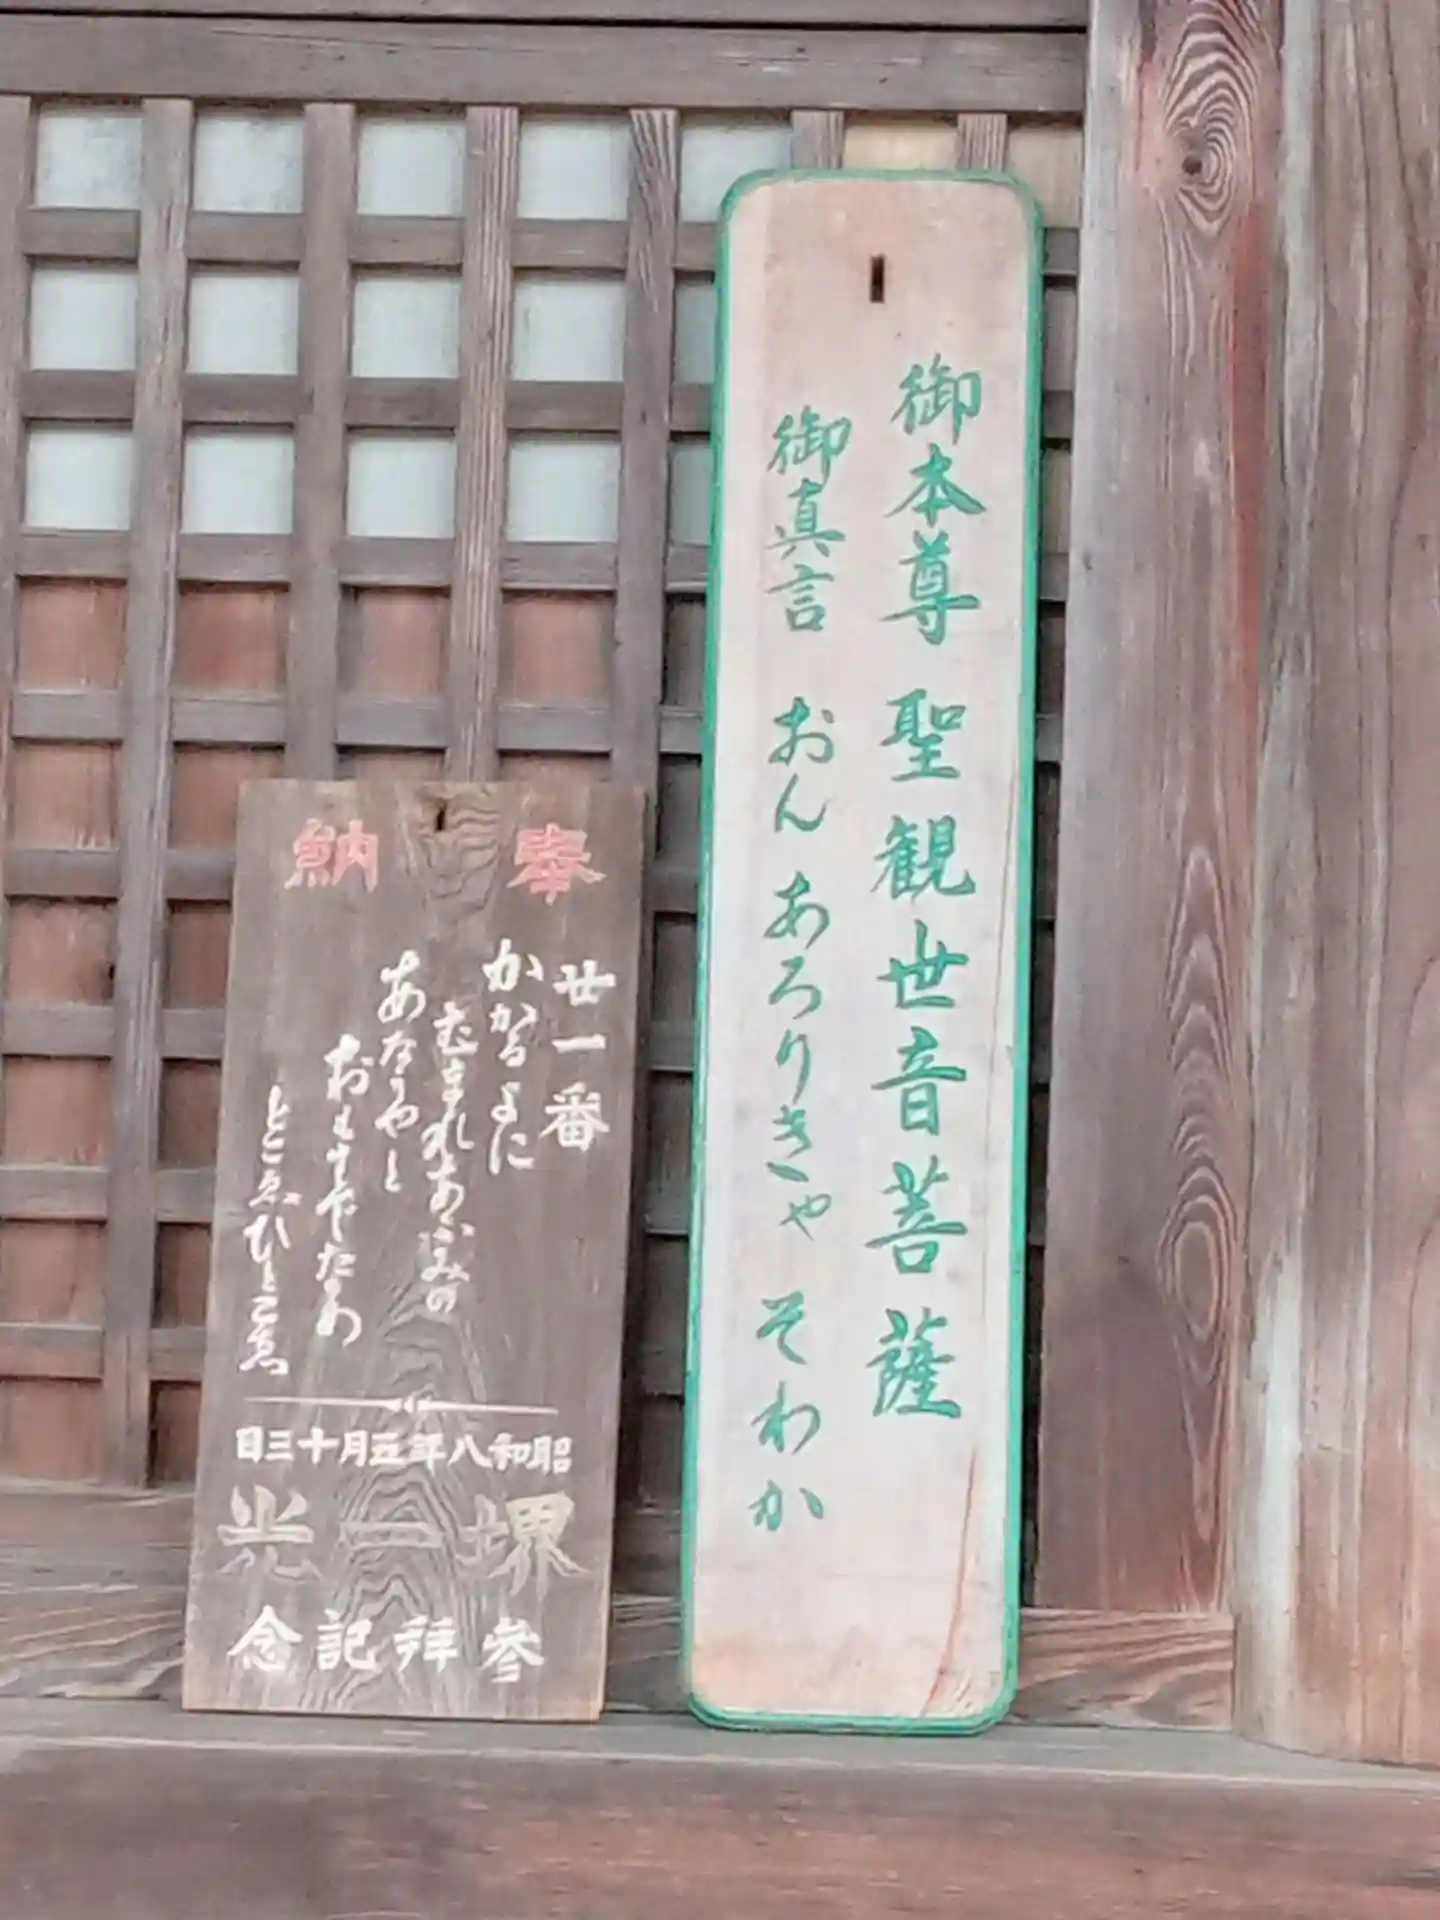 御本尊 聖観世音菩薩
御真言 おん あろりきゃ そわか
奉納
廿一番
かかるよに
むまれあふみの
あなうやと
おもはでたのめ
とこゑひとこゑ
昭和八年五月十三日
堺一光
參拜記念